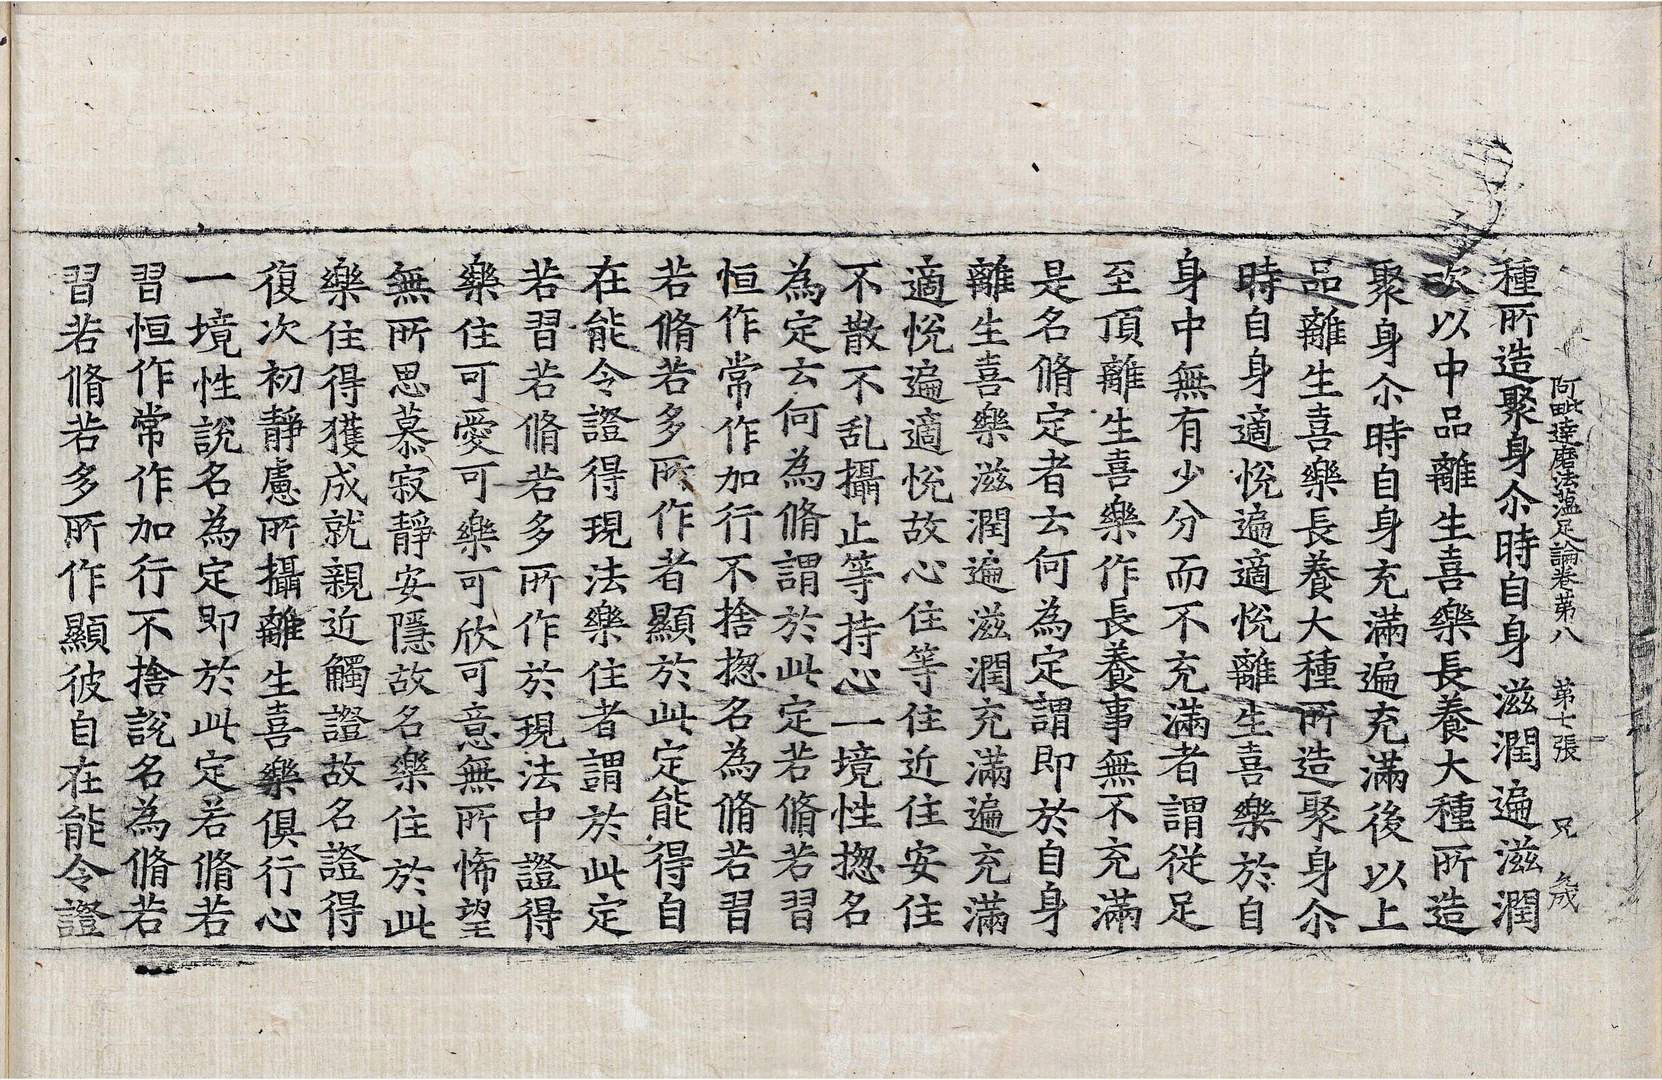 阿毗達磨法蘊足論卷第八 第七張 兄
種所造聚身尒時自身滋潤遍滋潤
次以中品離生喜樂長養大種所造
聚身尒時自身充滿遍充滿後以上
品離生喜樂長養大種所造聚身尒
時自身適悅遍適悅離生喜樂於自
身中無有少分而不充滿者謂從足
至頂離生喜樂作長養事無不充滿
是名脩定者云何為定謂即於自身
離生喜樂滋潤遍滋潤充滿遍充滿
適悅遍適悅故心住等住近住安住
不散不乱攝止等持心一境性揔名
為定云何為脩謂於此定若脩若習
恒作常作加行不捨揔名為脩若習
若脩若多所作者顯於此定能得自
在能令證得現法樂住者謂於此定
若習若脩若多所作於現法中證得
樂住可愛可樂可欣可意無所悕望
無所思慕寂靜安隱故名樂住於此
樂住得獲成就親近觸證故名證得
復次初靜慮所攝離生喜樂俱行心
一境性說名為定即於此定若脩若
習恒作常作加行不捨說名為脩若
習若脩若多所作顯彼自在能令證